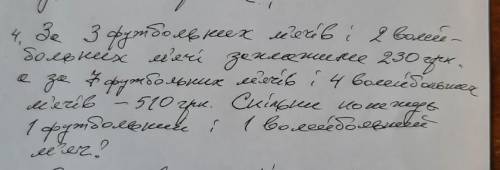 4. За 3 футбольних м'ячів і 2 волей-
больних м'ячі заплатили 230 грн.
а за 7 футбольних м'ячів і 4 волейбольних
м'ячів – 510 грн. Скільки коштують
1 футбольний і 1 волейбольний
м'яч?